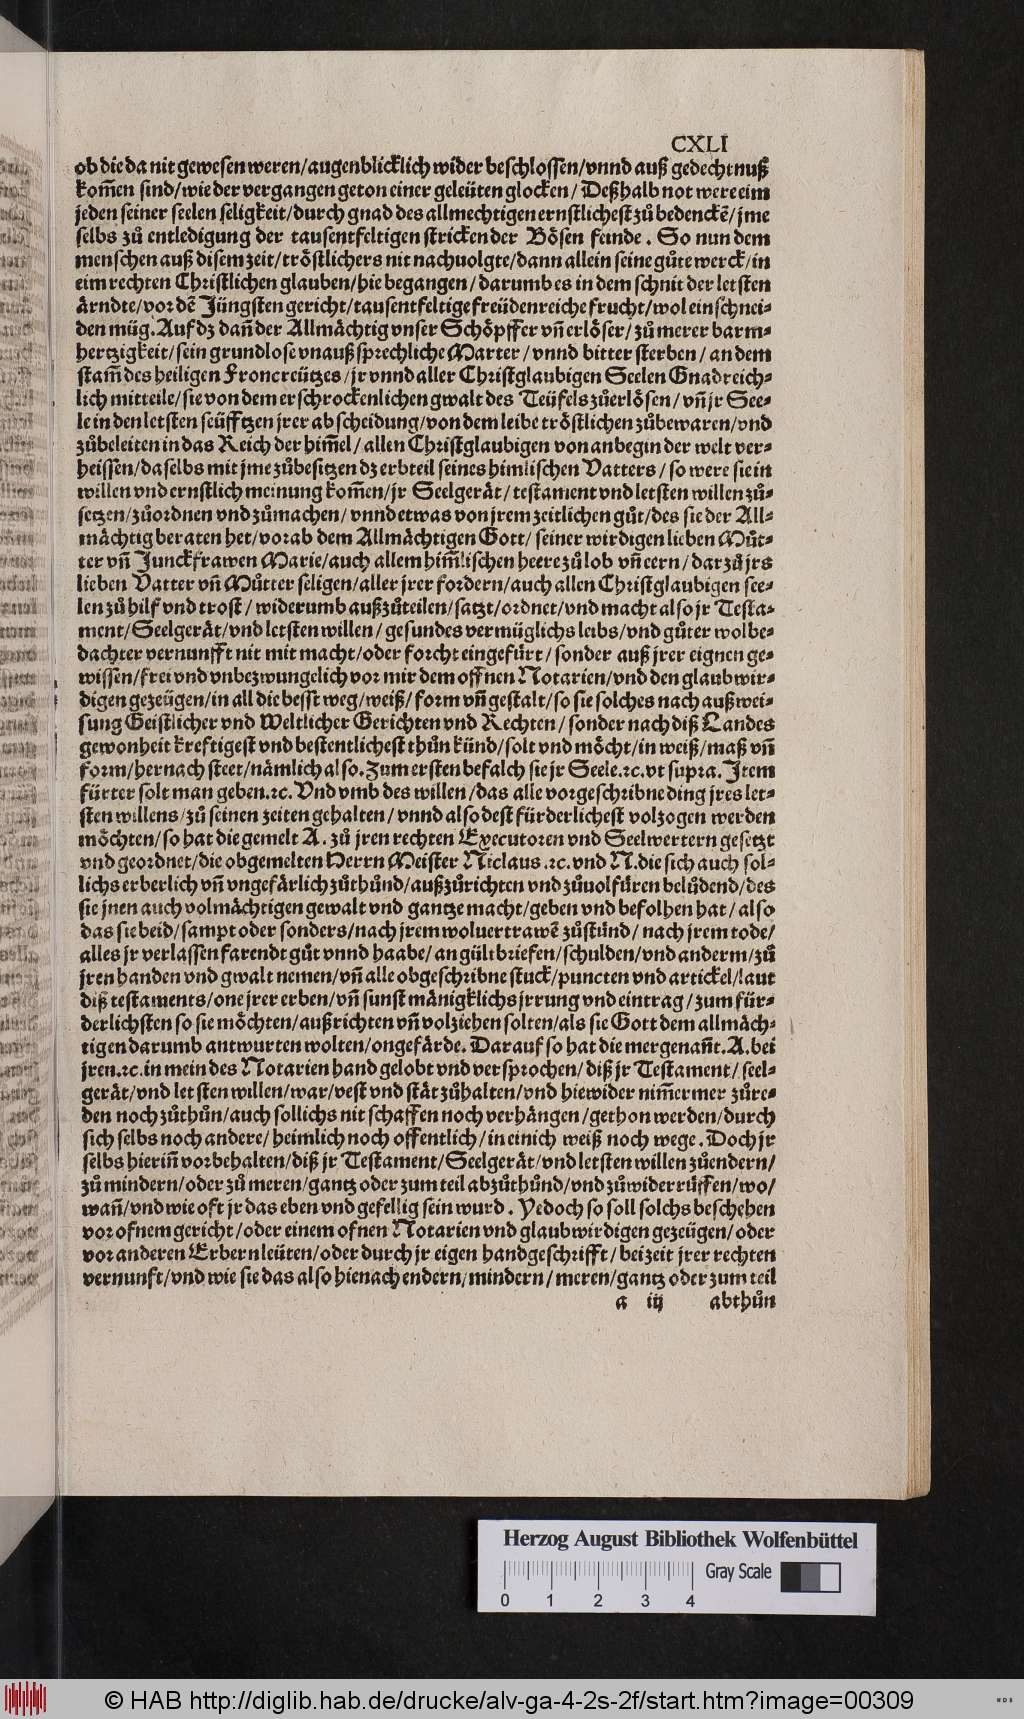 CXLI
ob die da nit gewesen weren/augenblicklich wider beschlossen/vnnd auß gedechtnuß
kom̃en sind/wie der vergangen geton einer geleüten glocken/ Deßhalb not were eim
jeden seiner seelen seligkeit/durch gnad des allmechtigen ernstlichest zů bedenckẽ/jme
selbs zů entledigung der tausentfeltigen stricken der Bösen feinde. So nun dem
menschen auß disem zeit/tröstlichers nit nachuolgte/dann allein seine gůte werck/in
eim rechten Christlichen glauben/hie begangen/ darumb es in dem schnit der letsten
ärndte/vor dẽ Jüngsten gericht/tausentfeltige freüdenreiche frucht/wol einschnei-
den müg. Auf dz dañ der Allmächtig vnser Schöpffer vñ erlöser/zů merer barm-
hertzigkeit/sein grundlose vnaußsprechliche Marter/ vnnd bitter sterben/an dem
stam̃ des heiligen Froncreützes/jr vnnd aller Christglaubigen Seelen Gnadreich-
lich mitteile/sie von dem erschrockenlichen gwalt des Teüfels zůerlösen/vñ jr See-
le in den letsten seüfftzen jrer abscheidung/von dem leibe tröstlichen zůbewaren/vnd
zůbeleiten in das Reich der him̃el/allen Christglaubigen von anbegin der welt ver-
heissen/daselbs mit jme zůbesitzen dz erbteil seines himlischen Vatters/so were sie in
willen vnd ernstlich meinung kom̃en/jr Seelgerät/testament vnd letsten willen zů-
setzen/zůordnen vnd zůmachen/vnnd etwas von jrem zeitlichen gůt/des sie der All-
mächtig beraten het/vorab dem Allmächtigen Gott/ seiner wirdigen lieben Můt-
ter vñ Junckfrawen Marie/auch allem him̃lischen heere zů lob vñ eern/dar zů jrs
lieben Vatter vñ Můtter seligen/aller jrer fordern/auch allen Christglaubigen see-
len zů hilf vnd trost/widerumb außzůteilen/satzt/ordnet/vnd macht also jr Testa-
ment/Seelgerät/vnd letsten willen/gesundes vermüglichs leibs/vnd gůter wolbe-
dachter vernunfft nit mit macht/oder forcht eingefürt/sonder auß jrer eignen ge-
wissen/frei vnd vnbezwungelich vor mir dem offnen Notarien/vnd den glaubwir-
digen gezeügen/in all die besst weg/weiß/form vñ gestalt/so sie solches nach außwei-
sung Geistlicher vnd Weltlicher Gerichten vnd Rechten/ sonder nach diß Landes
gewonheit kreftigest vnd bestentlichest thůn künd/solt vnd möcht/in weiß/maß vñ
form/hernach steet/nämlich also. Zum ersten befalch sie jr Seele.ꝛc.vt supra. Item
fürter solt man geben.ꝛc. Vnd vmb des willen/das alle vorgeschribne ding jres let-
sten willens/zů seinen zeiten gehalten/vnnd also dest fürderlichest volzogen werden
möchten/so hat die gemelt A. zů jren rechten Executoren vnd Seelwertern gesetzt
vnd geordnet/die obgemelten Herrn Meister Niclaus.ꝛc.vnd N.die sich auch sol-
lichs erberlich vñ vngefärlich zůthůnd/außzůrichten vnd zůuolfüren belůdend/des
sie jnen auch volmächtigen gewalt vnd gantze macht/geben vnd befolhen hat/also
das sie beid/sampt oder sonders/nach jrem woluertrawẽ zůstůnd/nach jrem tode/
alles jr verlassen farendt gůt vnnd haabe/an gültbriefen/schulden/vnd anderm/zů
jren handen vnd gwalt nemen/vñ alle obgeschribne stuck/puncten vnd artickel/laut
diß testaments/one jrer erben/vñ sunst mänigklichs jrrung vnd eintrag/zum für-
derlichsten so sie möchten/außrichten vñ volziehen solten/als sie Gott dem allmäch-
tigen darumb antwurten wolten/ongefärde. Darauf so hat die mergenañt.A.bei
jren.ꝛc.in mein des Notarien hand gelobt vnd versprochen/diß jr Testament/seel-
gerät/vnd letsten willen/war/vest vnd stät zůhalten/vnd hiewider nim̃ermer zůre-
den noch zůthůn/auch sollichs nit schaffen noch verhängen/gethon werden/durch
sich selbs noch andere/heimlich noch offentlich/in einich weiß noch wege. Doch jr
selbs hieriñ vorbehalten/diß jr Testament/Seelgerät/vnd letsten willen zůendern/
zů mindern/oder zů meren/gantz oder zum teil abzůthůnd/vnd zůwiderrüffen/wo/
wañ/vnd wie oft jr das eben vnd gefellig sein wurd. Yedoch so soll solchs beschehen
vor ofnem gericht/oder einem ofnen Notarien vnd glaubwirdigen gezeügen/oder
vor anderen Erbern leüten/oder durch jr eigen handgeschrifft/bei zeit jrer rechten
vernunft/vnd wie sie das also hienach endern/mindern/meren/gantz oder zum teil
a iij abthůn
Herzog August Bibliothek Wolfenbüttel
Gray Scale
0 1 2 3 4
© HAB http://diglib.hab.de/drucke/alv-ga-4-2s-2f/start.htm?image=00309